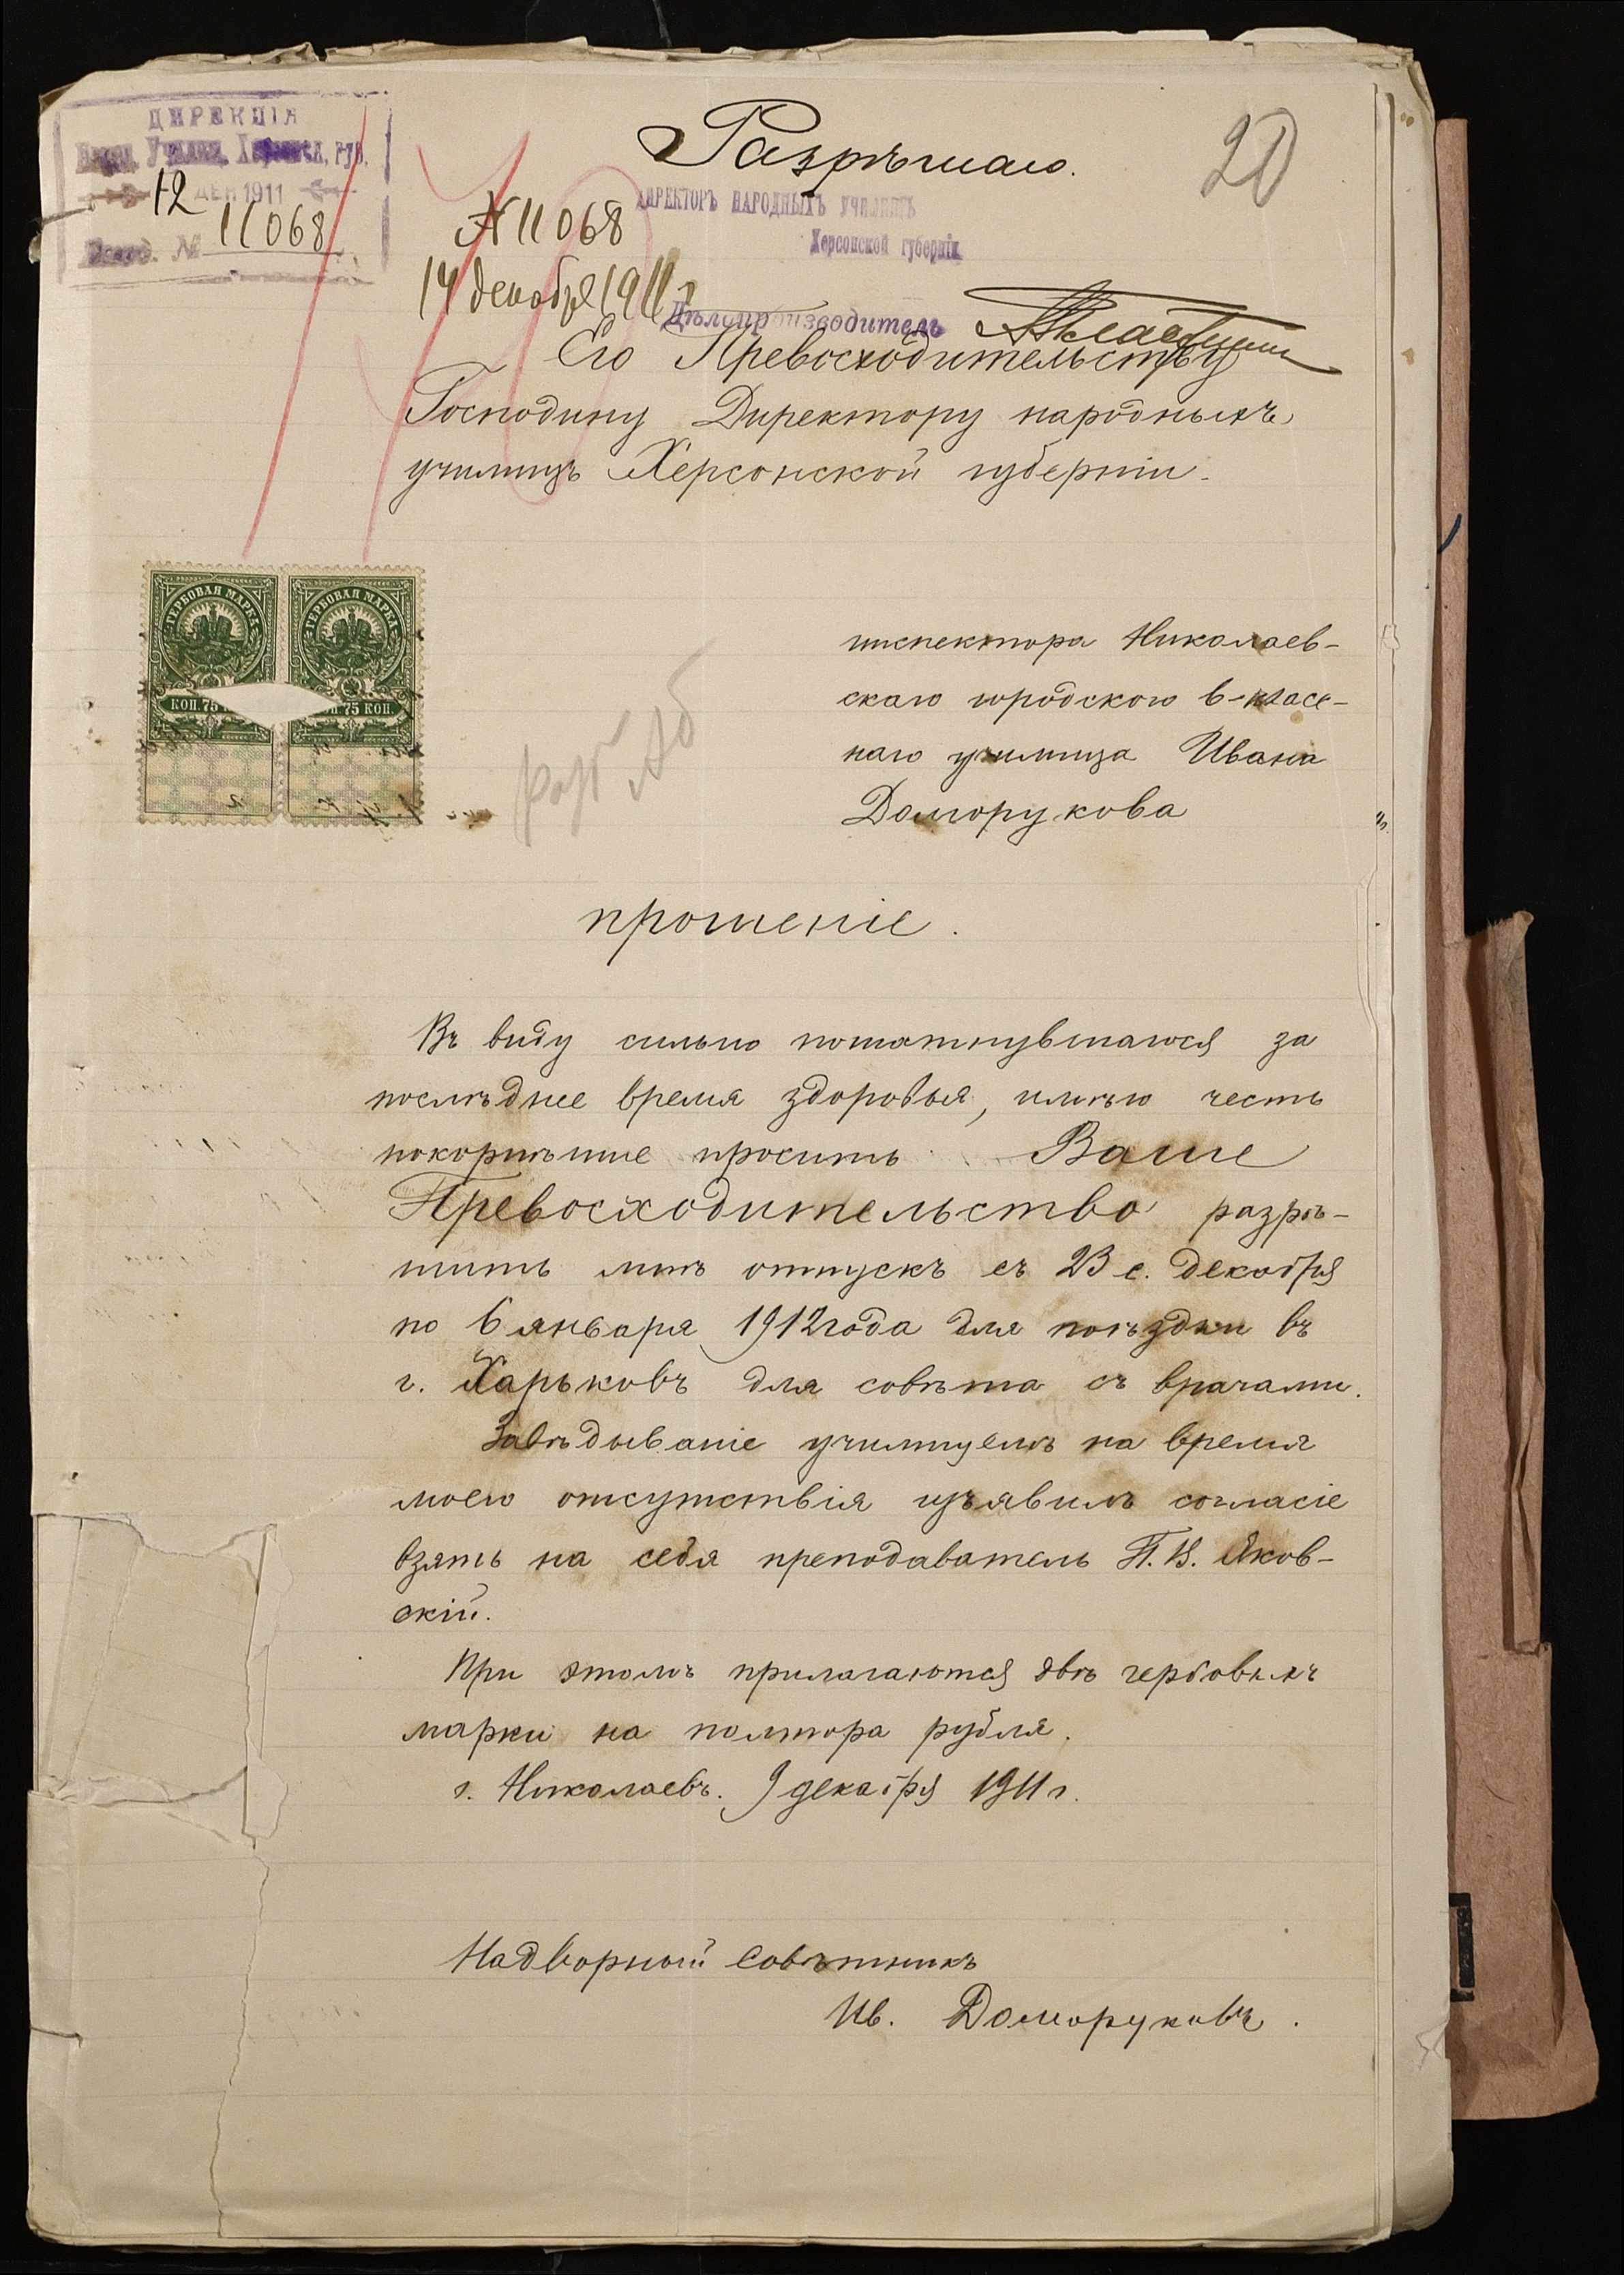 ДИРЕКЦІЯ
Народ. Училищ. Херсонск. губ.
12 ДЕК 1911
Вход. № 11068
20
Разрѣшаю.
ДИРЕКТОРЪ НАРОДНЫХЪ УЧИЛИЩЪ
Херсонской губерніи
№ 11068
14 декабря 1911 г
Дѣлопроизводитель
Его Превосходительству
Господину Директору народныхъ
училищъ Херсонской губерніи.
ГЕРБОВАЯ МАРКА ГЕРБОВАЯ МАРКА
КОП. 75 75 КОП.
инспектора Николаев-
скаго городского 6-класс-
наго училища Ивана
Долгорукова
прошеніе.
Въ виду сильно пошатнувшагося за
послѣднее время здоровья, имѣю честь
покорнѣйше просить Ваше
Превосходительство разрѣ-
шить мнѣ отпускъ съ 23 с. декабря
по 6 января 1912 года для поѣздки въ
г. Харьковъ для совѣта съ врачами.
Завѣдываніе училищемъ на время
моего отсутствія изъявилъ согласіе
взять на себя преподаватель П. И. Яков-
скій.
При этомъ прилагаются двѣ гербовыхъ
марки на полтора рубля.
г. Николаевъ. 9 декабря 1911 г.
Надворный Совѣтникъ
Ив. Долгоруковъ.